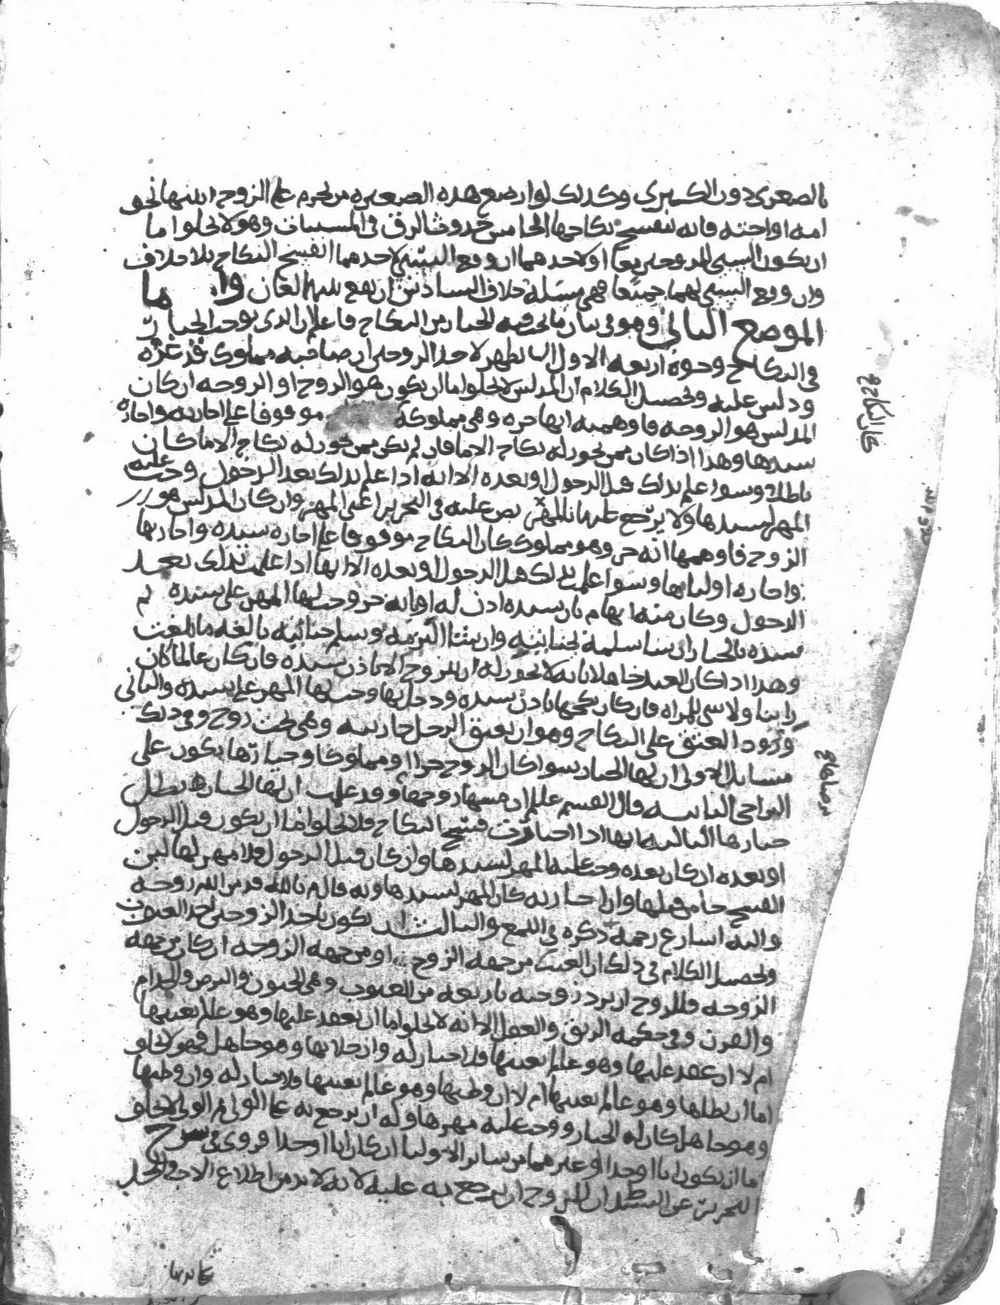 الصغرى دون الكبرى وكذلك لو ارضع هذه الصغيره من تحرم على الزوج ابنتها نحو
امه او اخته فانه ينفسخ نكاحها الخامس حدوث الرق في المسبيات وهو لا يخلوا اما
ان يكون السبي للزوجين معا او لاحدهما ان وقع السبي لاحدهما انفسخ النكاح بلا خلاف
وان وقع السبي لهما جميعا فهي مسئلة خلاف السادس ان يقع بينهما اللعان واما
الموضع الثاني وهو في بيان ما يجب فيه الخيار من النكاح فاعلم ان الذي يوجب الخيار
في النكاح وجوه اربعه الاول ان يظهر لاحد الزوجين ان صاحبه مملوك قد غره
ودلس عليه وتحصيل الكلام ان المدلس لا يخلوا اما ان يكون هو الزوج او الزوجه ان كان
المدلس هو الزوجه فاوهمته انها حره وهي مملوكة موقوفا على اجازته واجازة
سيدها وهذا اذا كان ممن يجوز له نكاح الاما فان لم يكن ممن يجوز له نكاح الاما كان
باطلا وسوا علم بذلك قبل الدخول او بعده الا انه اذا علم بذلك بعد الدخول وجب عليه
المهر لسيدها ولا يرجع عليها بالمهر نص عليه في التحرير اعني المهر وان كان المدلس هو
الزوج فاوهمها انه حر وهو مملوك كان النكاح موقوفا على اجازه سيده واجازتها
واجازه اوليائها وسوا علمت بذلك قبل الدخول او بعده الا انها اذا علمت بذلك بعد
الدخول وكان منه ايهام بان سيده اذن له او انه حر وجب لها المهر على سيده ثم
سيده بالخيار ان شا سلمه بجنايته وان شا التزمه وسلم جنايته بالغه ما بلغت
وهذا اذا كان العبد جاهلا بانه لا يجوز له ان يتزوج الا باذن سيده فان كان عالما كان
زانيا ولا شي للمراه فان كان نكحها باذن سيده ودخل بها وجب لها المهر على سيده والثاني
ورود العتق على النكاح وهو ان يعتق الرجل جاريته وهي تحت زوج وفي ذلك
مسايل الاولى ان لها الخيار سوا كان الزوج حرا او مملوكا وخيارها يكون على
التراخي الثانيه قال القسم عليلم ان مسها زوجها وقد علمت ان لها الخيار بطل
خيارها الثالثه انها اذا اختارت فسخ النكاح فلا يخلوا اما ان يكون قبل الدخول
او بعده ان كان بعده وجب عليه المهر لسيدها وان كان قبل الدخول فلا مهر لها لان
الفسخ جا من قبلها وان اختارته كان المهر لسيدها وبه قال م بالله قدس الله روحه
واليه اشار ع رحمه ذكره في اللمع والثالث ان يكون باحد الزوجين احد العيوب
وتحصيل الكلام في ذلك ان العيب من جهه الزوج او من جهه الزوجه ان كان من جهه
الزوجه فللزوج ان يرد زوجته باربعه من العيوب وهي الجنون والبرص والجذام
والقرن وفي حكمه الرتق والعفل الا انه لا يخلوا اما ان يعقد عليها وهو عالم بعيبها
ام لا ان عقد عليها وهو عالم بعيبها فلا خيار له وان خلا بها وهو جاهل فهو لا يخلو
اما ان يطاها وهو عالم بعيبها ام لا ان وطيها وهو عالم بعيبها فلا خيار له وان وطيها
وهو جاهل كان له الخيار ووجب عليه مهرها وله ان يرجع به على الولي ثم الولي لا يخلو
ما ان يكون ابا او جدا او غيرهما من سائر الاوليا ان كان ابا او جدا فروى في شرح
التحرير عن السيد ان للزوج ان يرجع به عليه لانه لا بد من اطلاع الاب والجد